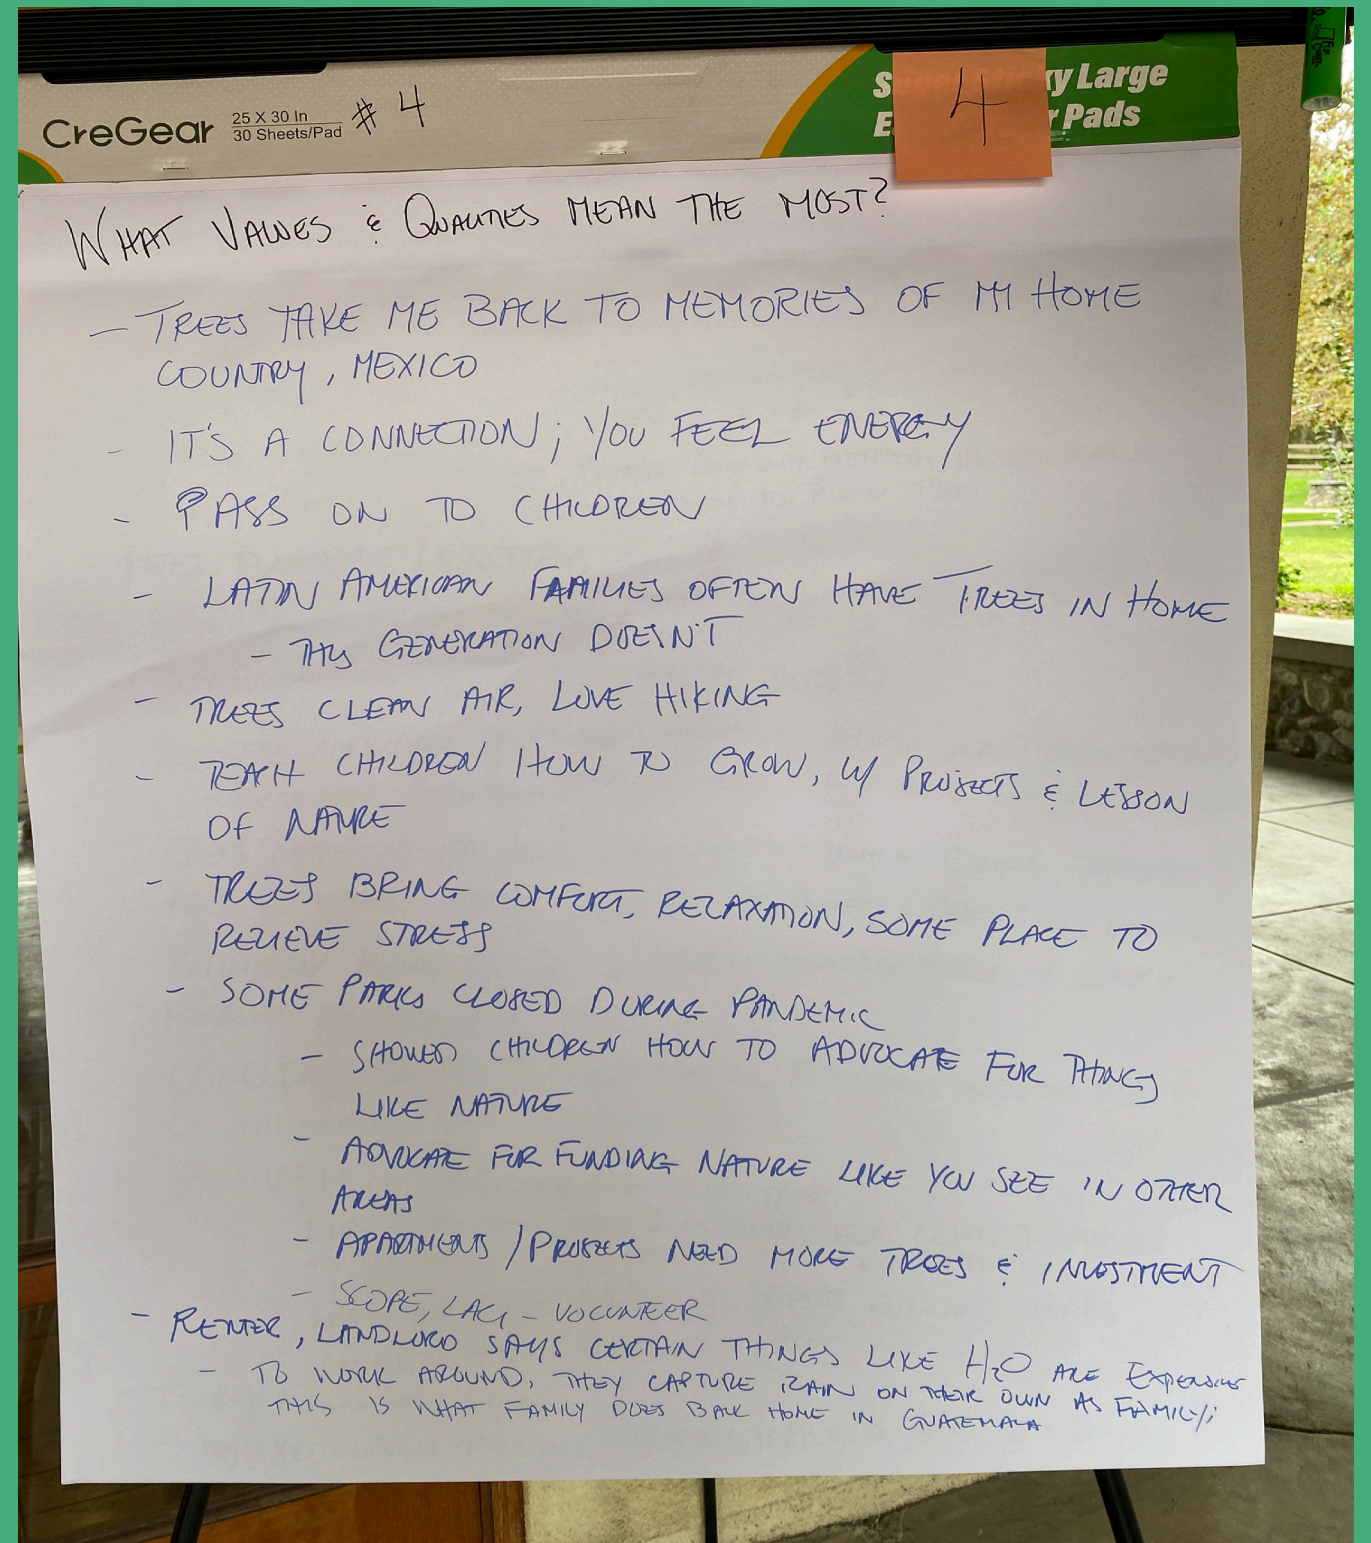 CreGear 25 X 30 In
30 Sheets/Pad
# 4
4
ky Large
r Pads
WHAT VALUES & QUALITIES MEAN THE MOST?
- TREES TAKE ME BACK TO MEMORIES OF MY HOME
COUNTRY, MEXICO
- IT'S A CONNECTION; YOU FEEL ENERGY
- PASS ON TO CHILDREN
- LATIN AMERICAN FAMILIES OFTEN HAVE TREES IN HOME
- THIS GENERATION DOESN'T
- TREES CLEAN AIR, LOVE HIKING
- TEACH CHILDREN HOW TO GROW, W/ PROJECTS & LESSON
OF NATURE
- TREES BRING COMFORT, RELAXATION, SOME PLACE TO
RELIEVE STRESS
- SOME PARKS CLOSED DURING PANDEMIC
- SHOWED CHILDREN HOW TO ADVOCATE FOR THINGS
LIKE NATURE
- ADVOCATE FOR FUNDING NATURE LIKE YOU SEE IN OTHER
AREAS
- APARTMENTS / PROJECTS NEED MORE TREES & INVESTMENT
- SCOPE, LACI - VOLUNTEER
- RENTER, LANDLORD SAYS CERTAIN THINGS LIKE H2O ARE EXPENSIVE
- TO WORK AROUND, THEY CAPTURE RAIN ON THEIR OWN AS FAMILY;
THIS IS WHAT FAMILY DOES BACK HOME IN GUATEMALA